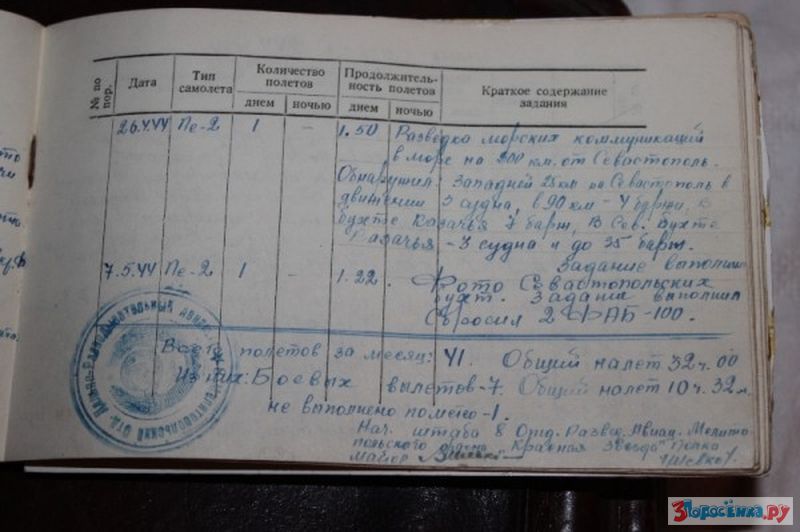 № по пор.
Дата
Тип самолета
Количество полетов
днем
ночью
Продолжительность полетов
днем
ночью
Краткое содержание задания
26.4.44 Пе-2 1 – 1.50 Разведка морских коммуникаций
в море на 200 км. от Севастополь.
Обнаружил: Западней 25 км Севастополь в
движении 3 судна, в 90 км – 4 баржи, в
бухте Казачья 7 барж, в Сев. Бухте
Казачья – 3 судна и до 35 барж.
Задание выполнил
7.5.44 Пе-2 1 – 1.22. Фото Севастопольских
бухт. Задание выполнил
Сбросил 2 ФАБ-100.
Всего полетов за месяц: 41. Общий налет 32 ч. 00
Из них: Боевых вылетов-7. Общий налет 10 ч. 32 м.
не выполнено по метео-1.
Нач. штаба 8 Отд. Развед. Авиац. Мелито
польского "Красная Звезда" Полка
майор
Поросёнка.ру